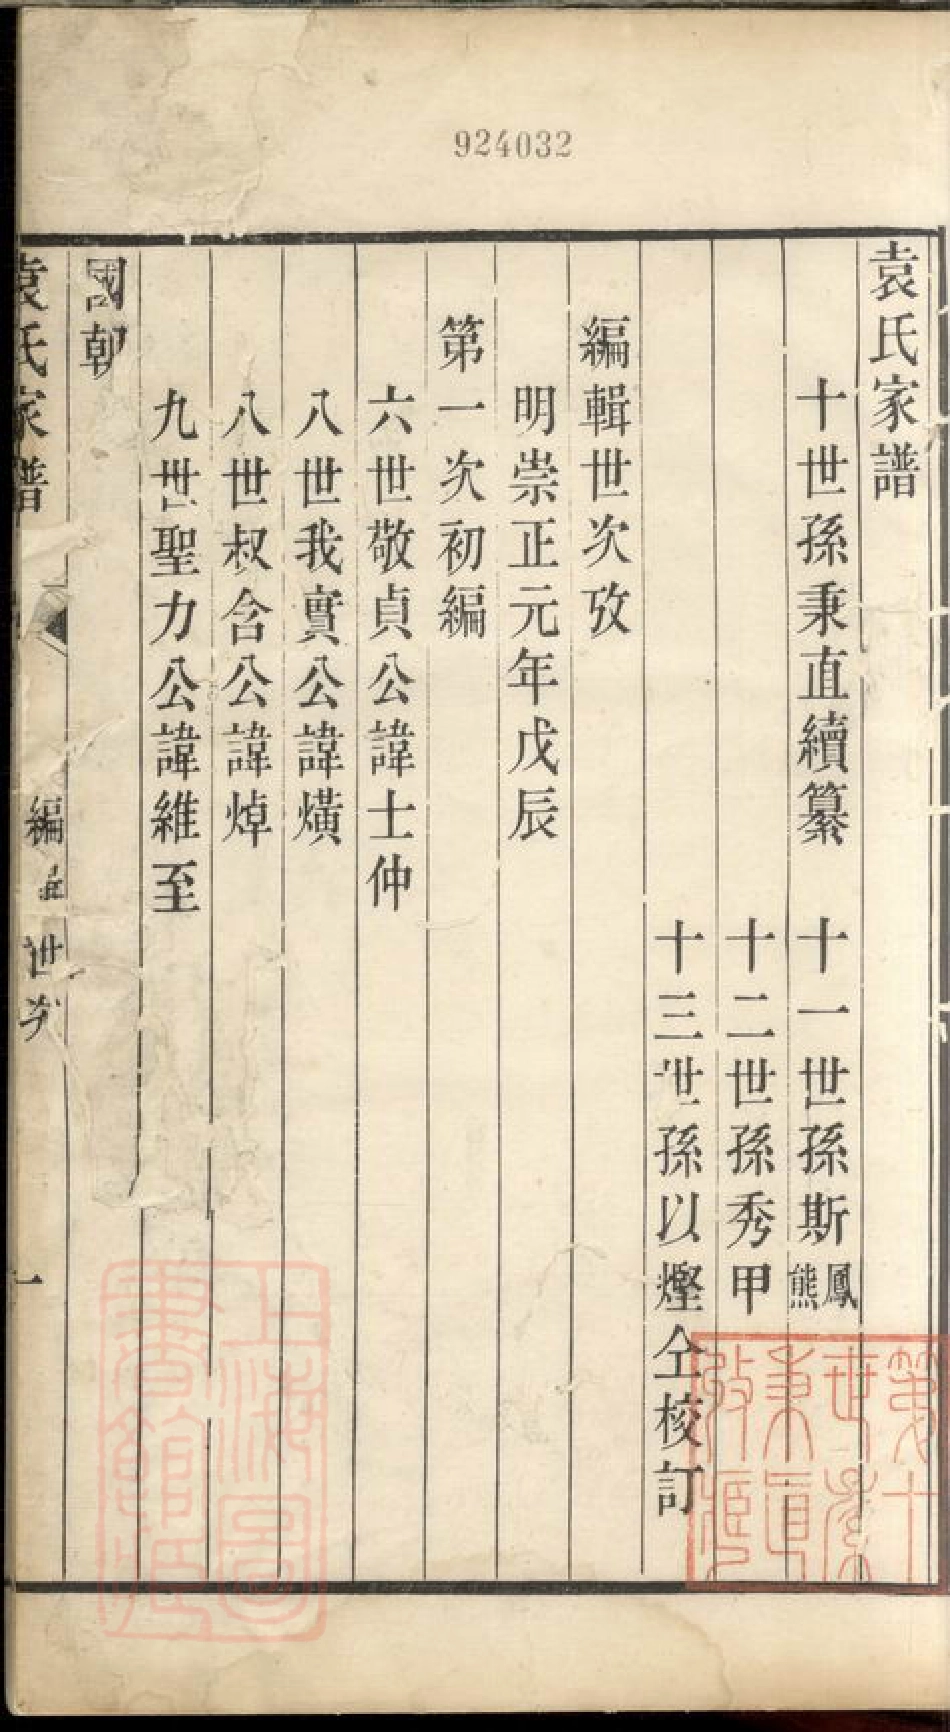 924032
袁氏家譜
十世孫秉直續纂　十一世孫斯鳳熊
十二世孫秀甲
十三世孫以燿仝校訂
編輯世次攷
明崇正元年戊辰
第一次初編
六世敬貞公諱士仲
八世我實公諱熿
八世叔含公諱焯
九世聖力公諱維至
國朝
袁氏家譜　編輯世次　一
上海圖書館藏